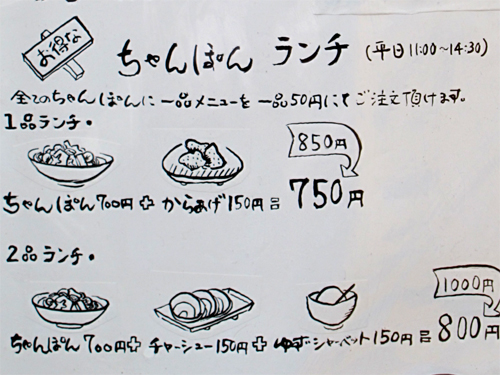 お得な
ちゃんぽん ランチ (平日11:00~14:30)
全てのちゃんぽんに一品メニューを一品50円にてご注文頂けます。
1品ランチ・
850円
ちゃんぽん700円+からあげ150円=750円
2品ランチ・
1000円
ちゃんぽん700円+チャーシュー150円+ゆずシャーベット150円=800円